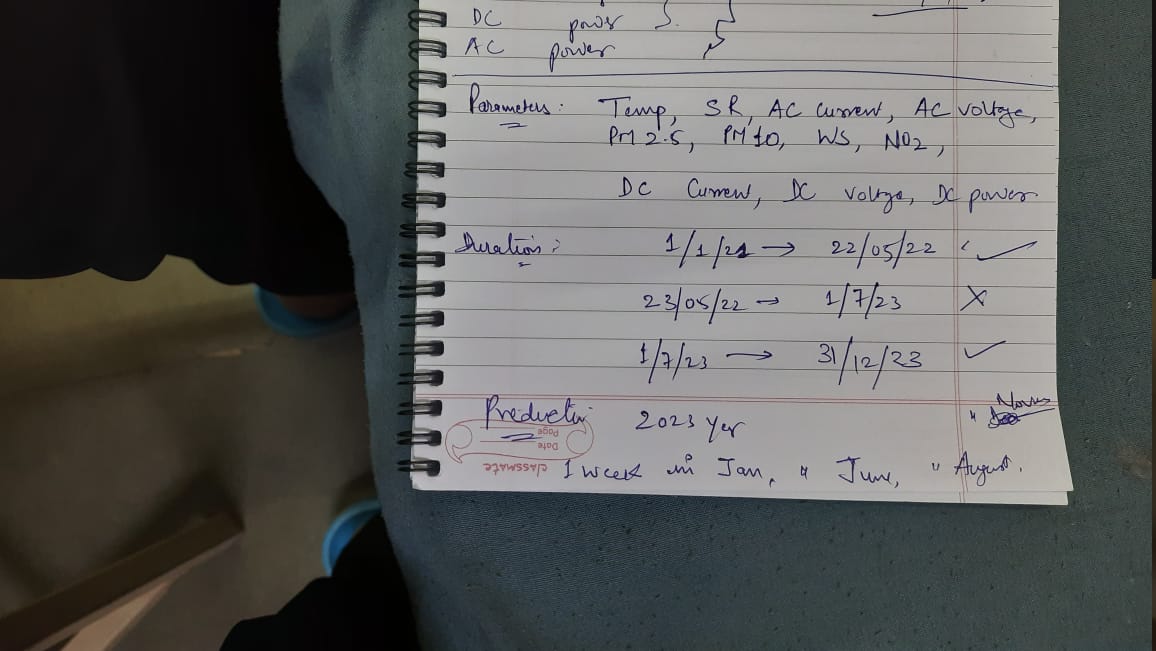 DC power
AC power
Parameters: Temp, SR, AC Current, AC Voltage,
PM 2.5, PM 10, WS, NO2,
DC Current, DC Voltage, DC power
Duration: 1/1/21 → 22/05/22 ✓
23/05/22 → 1/7/23 X
1/7/23 → 31/12/23 ✓
2023 year
1 week in Jan, " June, " August.
classmate
Date
Page